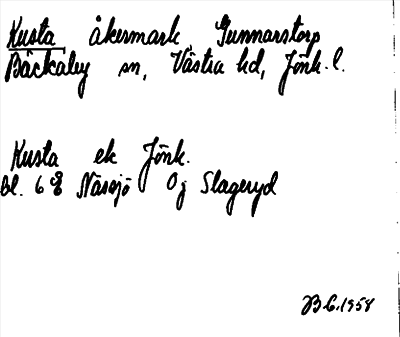 Kusta åkermark, Gunnarstorp
Bäckaby sn, Västra hd, Jönk. l.
Kusta ek Jönk.
Bl. 6 Nässjö Og Slageryd
1958